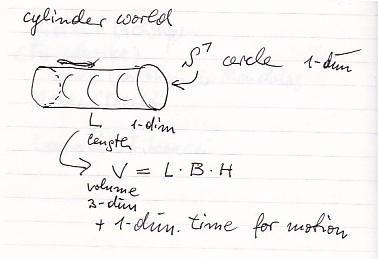 cylinder world
S¹ cercle 1-dim
L 1-dim
length
V = L · B · H
volume
3-dim
+ 1-dim. time for motion